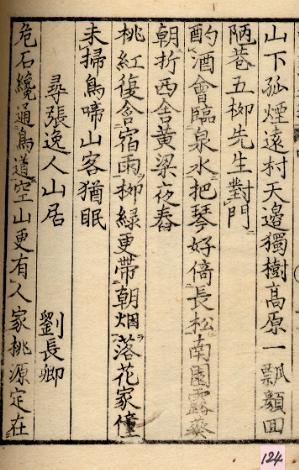 山下孤煙遠村天邉獨樹高原一瓢顏囬
陋巷五栁先生對門
酌酒會臨泉水把琴好倚長松南園露葵
朝折西舍黄梁夜舂
桃紅復含宿雨栁緑更帶朝烟落花家僮
未掃鳥啼山客猶眠
尋張逸人山居　劉長卿
危石纔通鳥道空山更有人家桃源定在
124